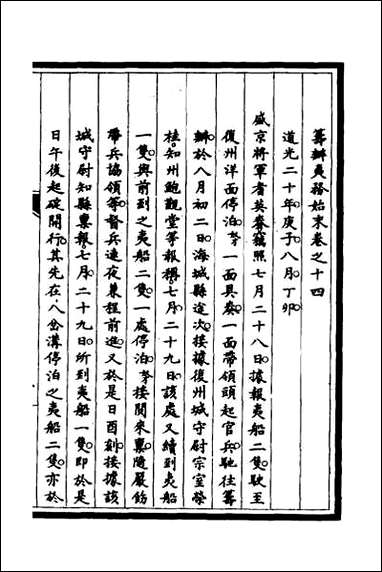 籌辦夷務始末卷之十四
道光二十年庚子八月丁卯
盛京將軍耆英奏竊照七月二十八日據報夷船二隻駛至
復州洋面停泊一面具奏一面帶領頭起官兵馳往籌
辦於八月初二日海城縣途次接據復州城守尉宗室榮
桂知州鮑觀堂等報稱七月二十九日該處又續到夷船
一隻與前到之夷船二隻一處停泊等接閱來稟隨嚴飭
帶兵協領等督兵連夜兼程前進又於是日酉刻接據該
城守尉知縣稟報七月二十九日所到夷船一隻即於是
日午後起碇開行其先在八岔溝停泊之夷船二隻亦於